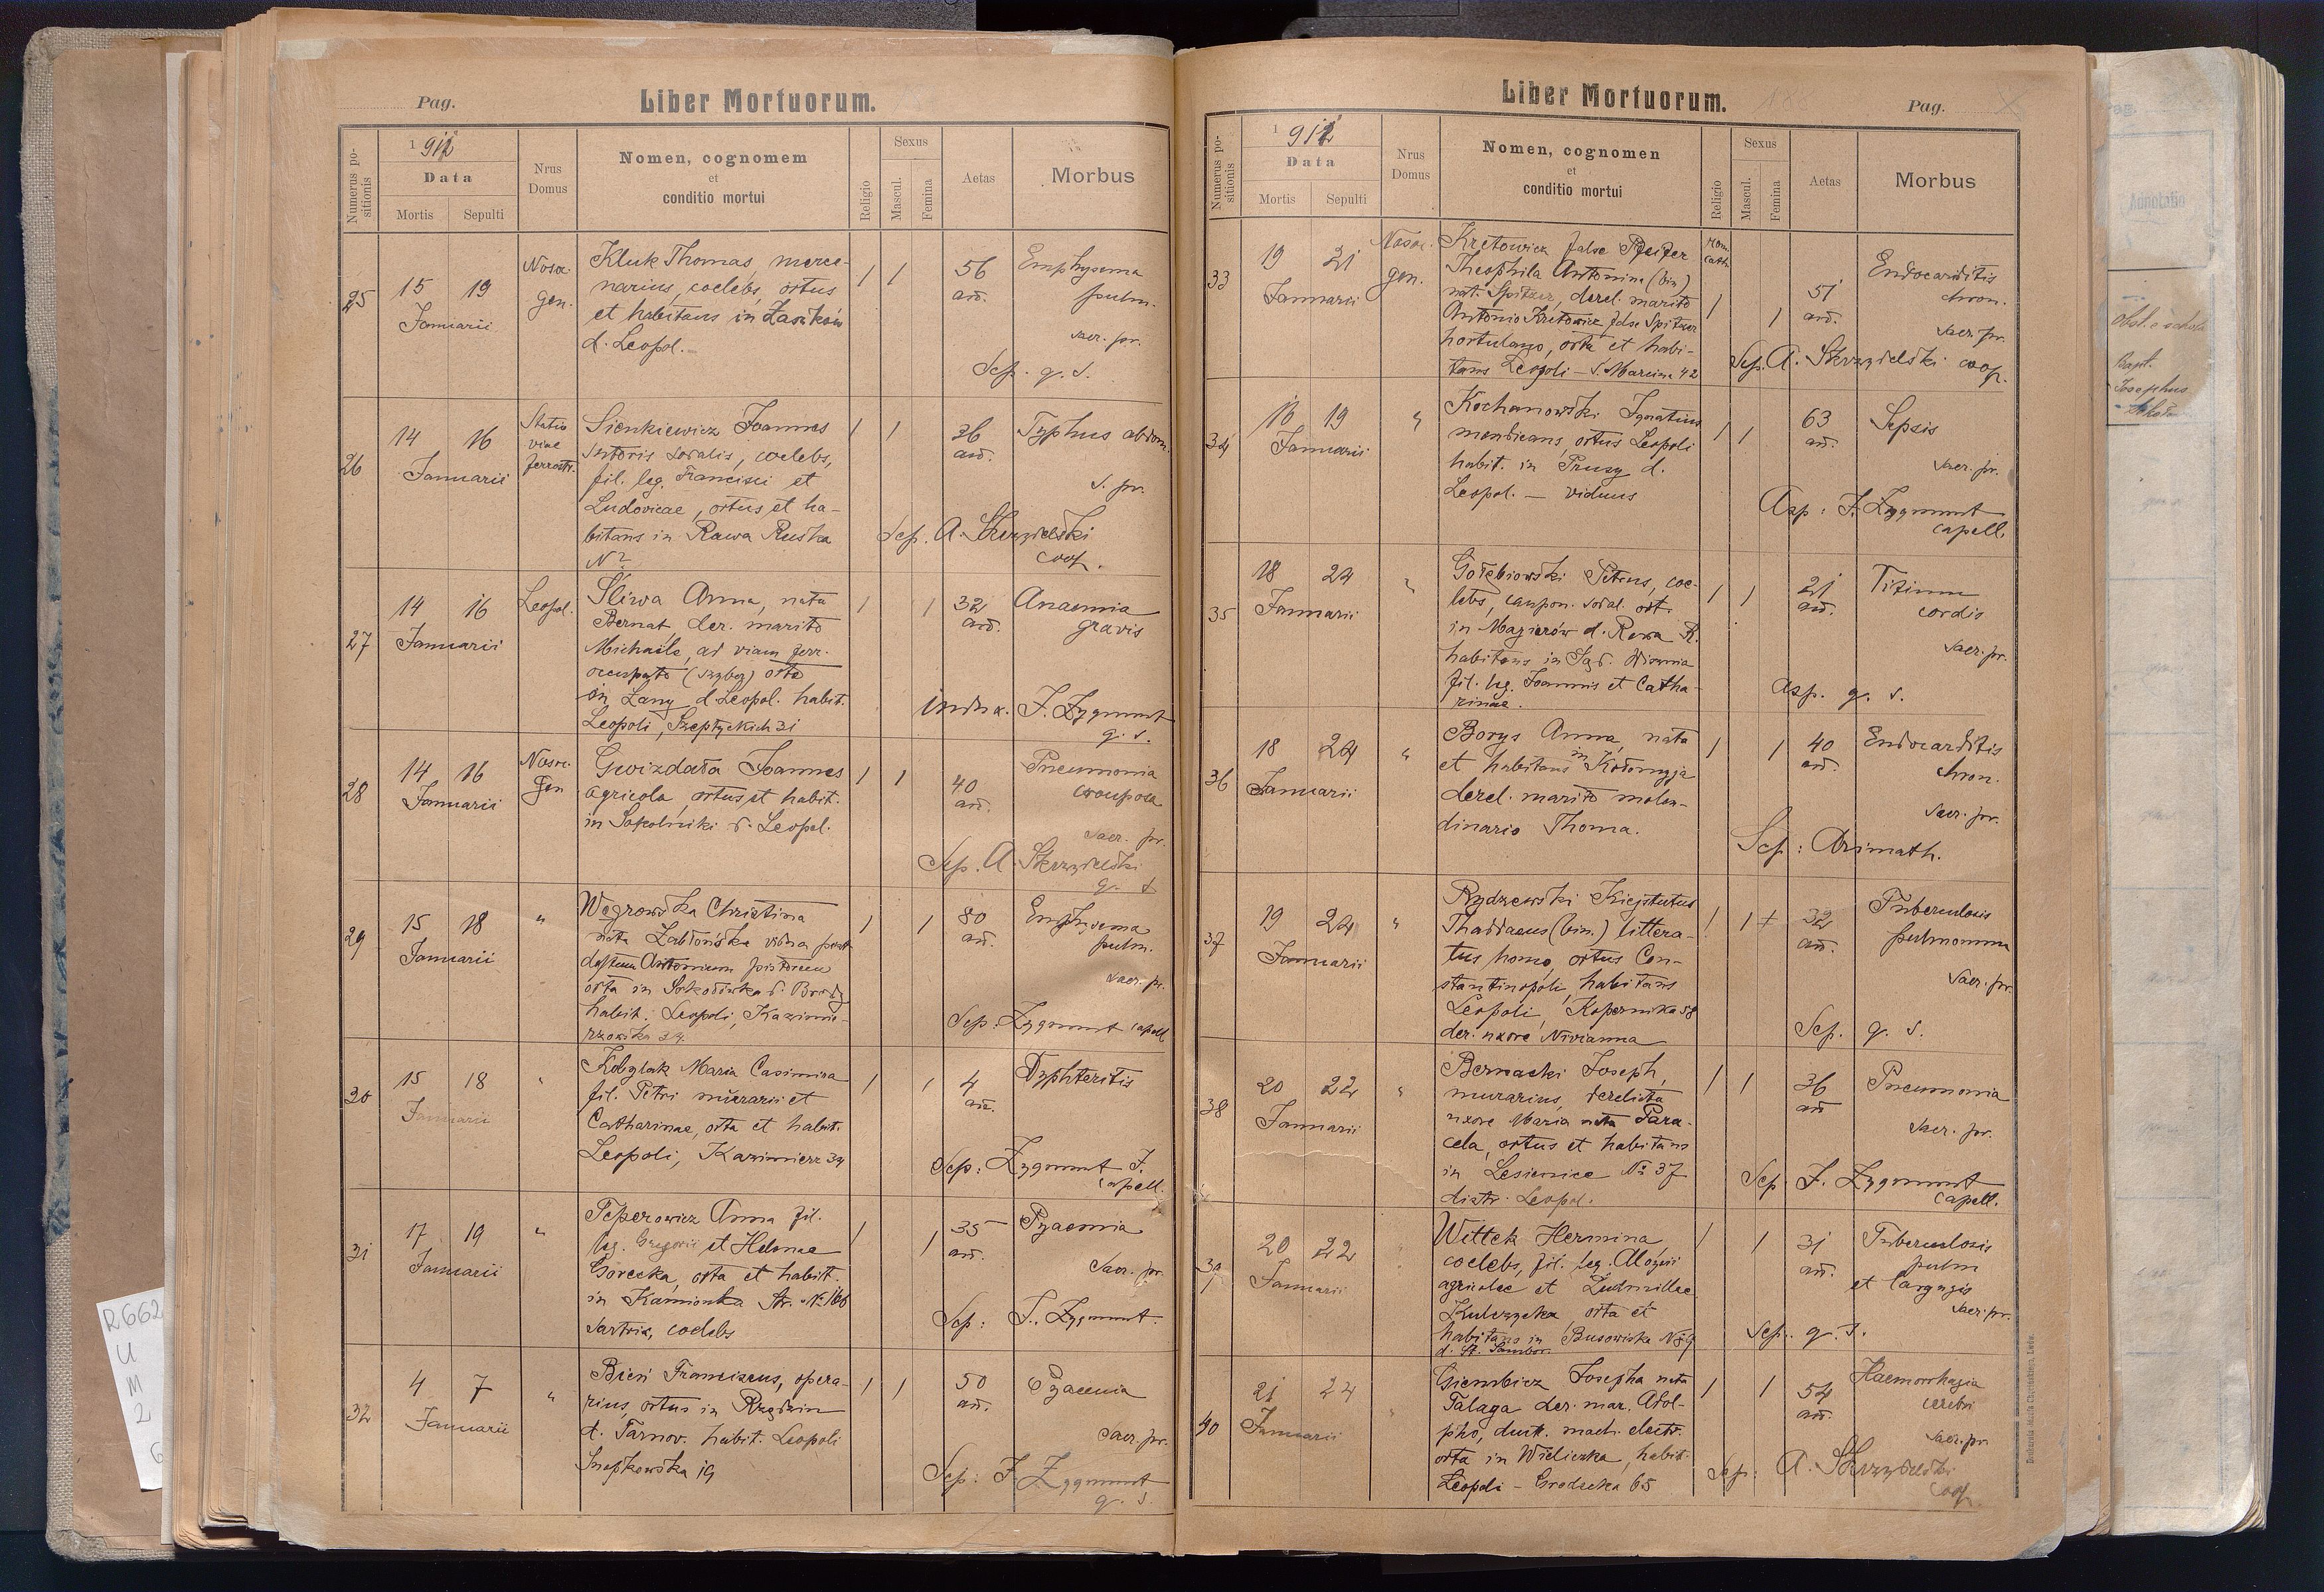 Pag.
Liber Mortuorum.
Numerus po-
sitionis
1912
Data
Mortis Sepulti
Nrus
Domus
Nomen, cognomem
et
conditio mortui
Religio
Sexus
Mascul.
Femina
Aetas
Morbus
25
15 19
Januarii
Nosoc.
gen.
Kluk Thomas, merce-
narius, coelebs, ortus
et habitans in Zaszków
d. Leopol.
1 1
56
an.
Emphysema
pulm.
sacr. pr.
Sep. q. s.
26
14 16
Januarii
Statio
viae
ferratr.
Sienkiewicz Joannes
sutoris sodalis, coelebs,
fil. leg. Francisci et
Ludovicae, ortus et ha-
bitans in Rawa Ruska
No
1 1
36
an.
Typhus abdom.
s. pr.
Sep. A. Skrzydelski
coop.
27
14 16
Januarii
Leopol.
Śliwa Anna, nata
Bernat der. marito
Michaele, ad viam ferr.
occupato (szyber) orta
in Łany d. Leopol. habit.
Leopoli, Szeptyckich 31
1 1
32
an.
Anaemia
gravis
J. Zygmunt
q. s.
28
14 16
Januarii
Nosoc.
gen
Gwizdała Joannes
agricola, ortus et habit.
in Sokolniki d. Leopol.
1 1
40
an.
Pneumonia
crouposa
sacr. pr.
Sep. A. Skrzydelski
q. s
29
15 18
Januarii
"
Węgrowska Christina
nata Zabłońska vidua post
defunctum Antonium pistorem
orta in Sokołówka d. Brody
habit. Leopoli, Kazimie-
rzowska 34.
1 1
80
an.
Emphysema
pulm.
sacr. pr.
Sep: Zygmunt capell.
30
15 18
Januarii
"
Kobylak Maria Casimira
fil. Petri murarii et
Catharinae, orta et habit.
Leopoli, Kazimierz 34
1 1
4
an.
Dyphteritis
Sep: Zygmunt J.
capell.
31
17 19
Januarii
"
Teperowicz Anna fil.
leg. Gregorii et Helenae
Gorecka, orta et habit.
in Kamionka Str. No 166
sartrix, coelebs
1 1
35
an.
Pyaemia
Sacr. pr.
Sep: J. Zygmunt.
32
4 7
Januarii
"
Bień Franciscus, opera-
rius, ortus in Rzędzin
d. Tarnov. habit. Leopoli
Snopkowska 19
1 1
50
an.
Pyaemia
Sacr. pr.
Sep: J Zygmunt
q. s.
Liber Mortuorum.
Pag.
Numerus po-
sitionis
1912
Data
Mortis Sepulti
Nrus
Domus
Nomen, cognomen
et
conditio mortui
Religio
Sexus
Mascul.
Femina
Aetas
Morbus
33
19 21
Januarii
Nosoc.
gen.
Kretowicz false Pfeifer
Theophila Antonina (bin)
nat. Spitzer, derel. marito
Antonio Kretowicz false Spitzer
hortulano, orta et habi-
tans Leopoli - S. Marcina 42
rom.
cath
1 1
51
an.
Endocarditis
chron.
sacr. pr.
Sep. A. Skrzydelski coop.
34
16 19
Januarii
"
Kochanowski Ignatius
mendicans, ortus Leopoli
habit. in Prusy d.
Leopol. — viduus
1 1
63
an.
Sepsis
sacr. pr.
Asp: J. Zygmunt
capell.
35
18 24
Januarii
"
Gołebiowski Petrus, coe-
lebs, caupon. sodal. ort.
in Magierów d. Rawa R.
habitans in Sąd. Wisznia
fil. leg. Joannis et Catha-
rinae.
1 1
21
an.
Vitium
cordis
sacr. pr.
Asp. q. s.
36
18 24
Januarii
"
Borys Anna, nata
et habitans in Kołomyja
derel. marito molen-
dinario Thoma.
1 1
40
an.
Endocarditis
chron.
sacr. pr.
Sep: Arimath.
37
19 24
Januarii
"
Rydzewski Kiejstutus
Thaddaeus (bin.) littera-
tus homo, ortus Con-
stantinopoli, habitans
Leopoli, Kopernika 58
der. uxore Nivianna
1 1 +
32
an.
Tuberculosis
pulmonum
sacr. pr.
Sep. q. s.
38
20 22
Januarii
"
Bernacki Joseph,
murarius, derelicta
uxore Maria nata Para-
cela, ortus et habitans
in Lesienice No 37
distr. Leopol.
1 1
36
an
Pneumonia
Sacr. pr.
Sep J. Zygmunt
capell.
39
20 22
Januarii
"
Wittek Hermina
coelebs, fil. leg. Aloysii
agricolae et Ludmillae
Kulczycka orta et
habitans in Busowiska No 9
d. St. Sambor.
1 1
31
an.
Tuberculosis
pulm
et laryngis
sacr. pr.
Sep. q. s.
40
21 24
Januarii
"
Giembicz Josepha nata
Talaga der. mar. Adol-
pho, duct. mach. electr.
orta in Wieliczka, habit.
Leopoli - Grodecka 65
1 1
54
an.
Haemorrhagia
cerebri
sacr. pr.
Sep: A. Skrzydelski
coop.
Annotatio
Bapt.
Josephus
R662
U
M
2
6